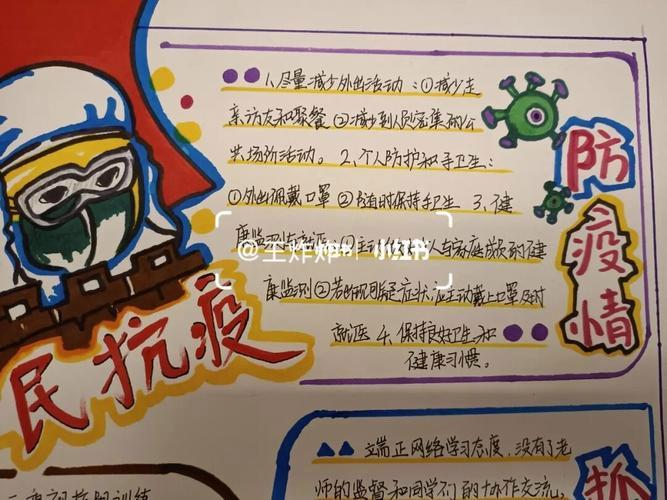 1、尽量减少外出活动：①减少走
亲访友和聚餐②减少到人员密集的公
共场所活动。2、个人防护和手卫生：
①外出佩戴口罩②随时保持手卫生 3、健
康监测与就医①主动做好个人与家庭成员的健
康监测②若出现可疑症状,应主动戴上口罩及时
就医 4、保持良好卫生和
健康习惯。
防疫情
民抗疫
@王炸炸 小红书
端正网络学习态度,没有了老
师的监督和同学们的协作交流,
抓